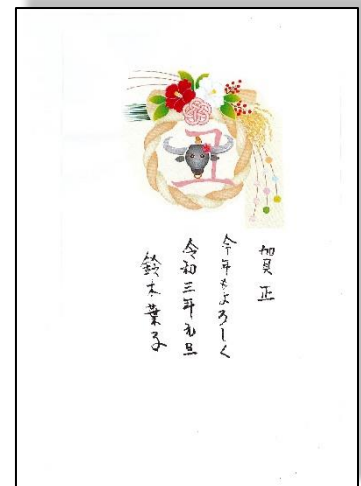 丑
賀正
今年もよろしく
令和三年元旦
鈴木葉子